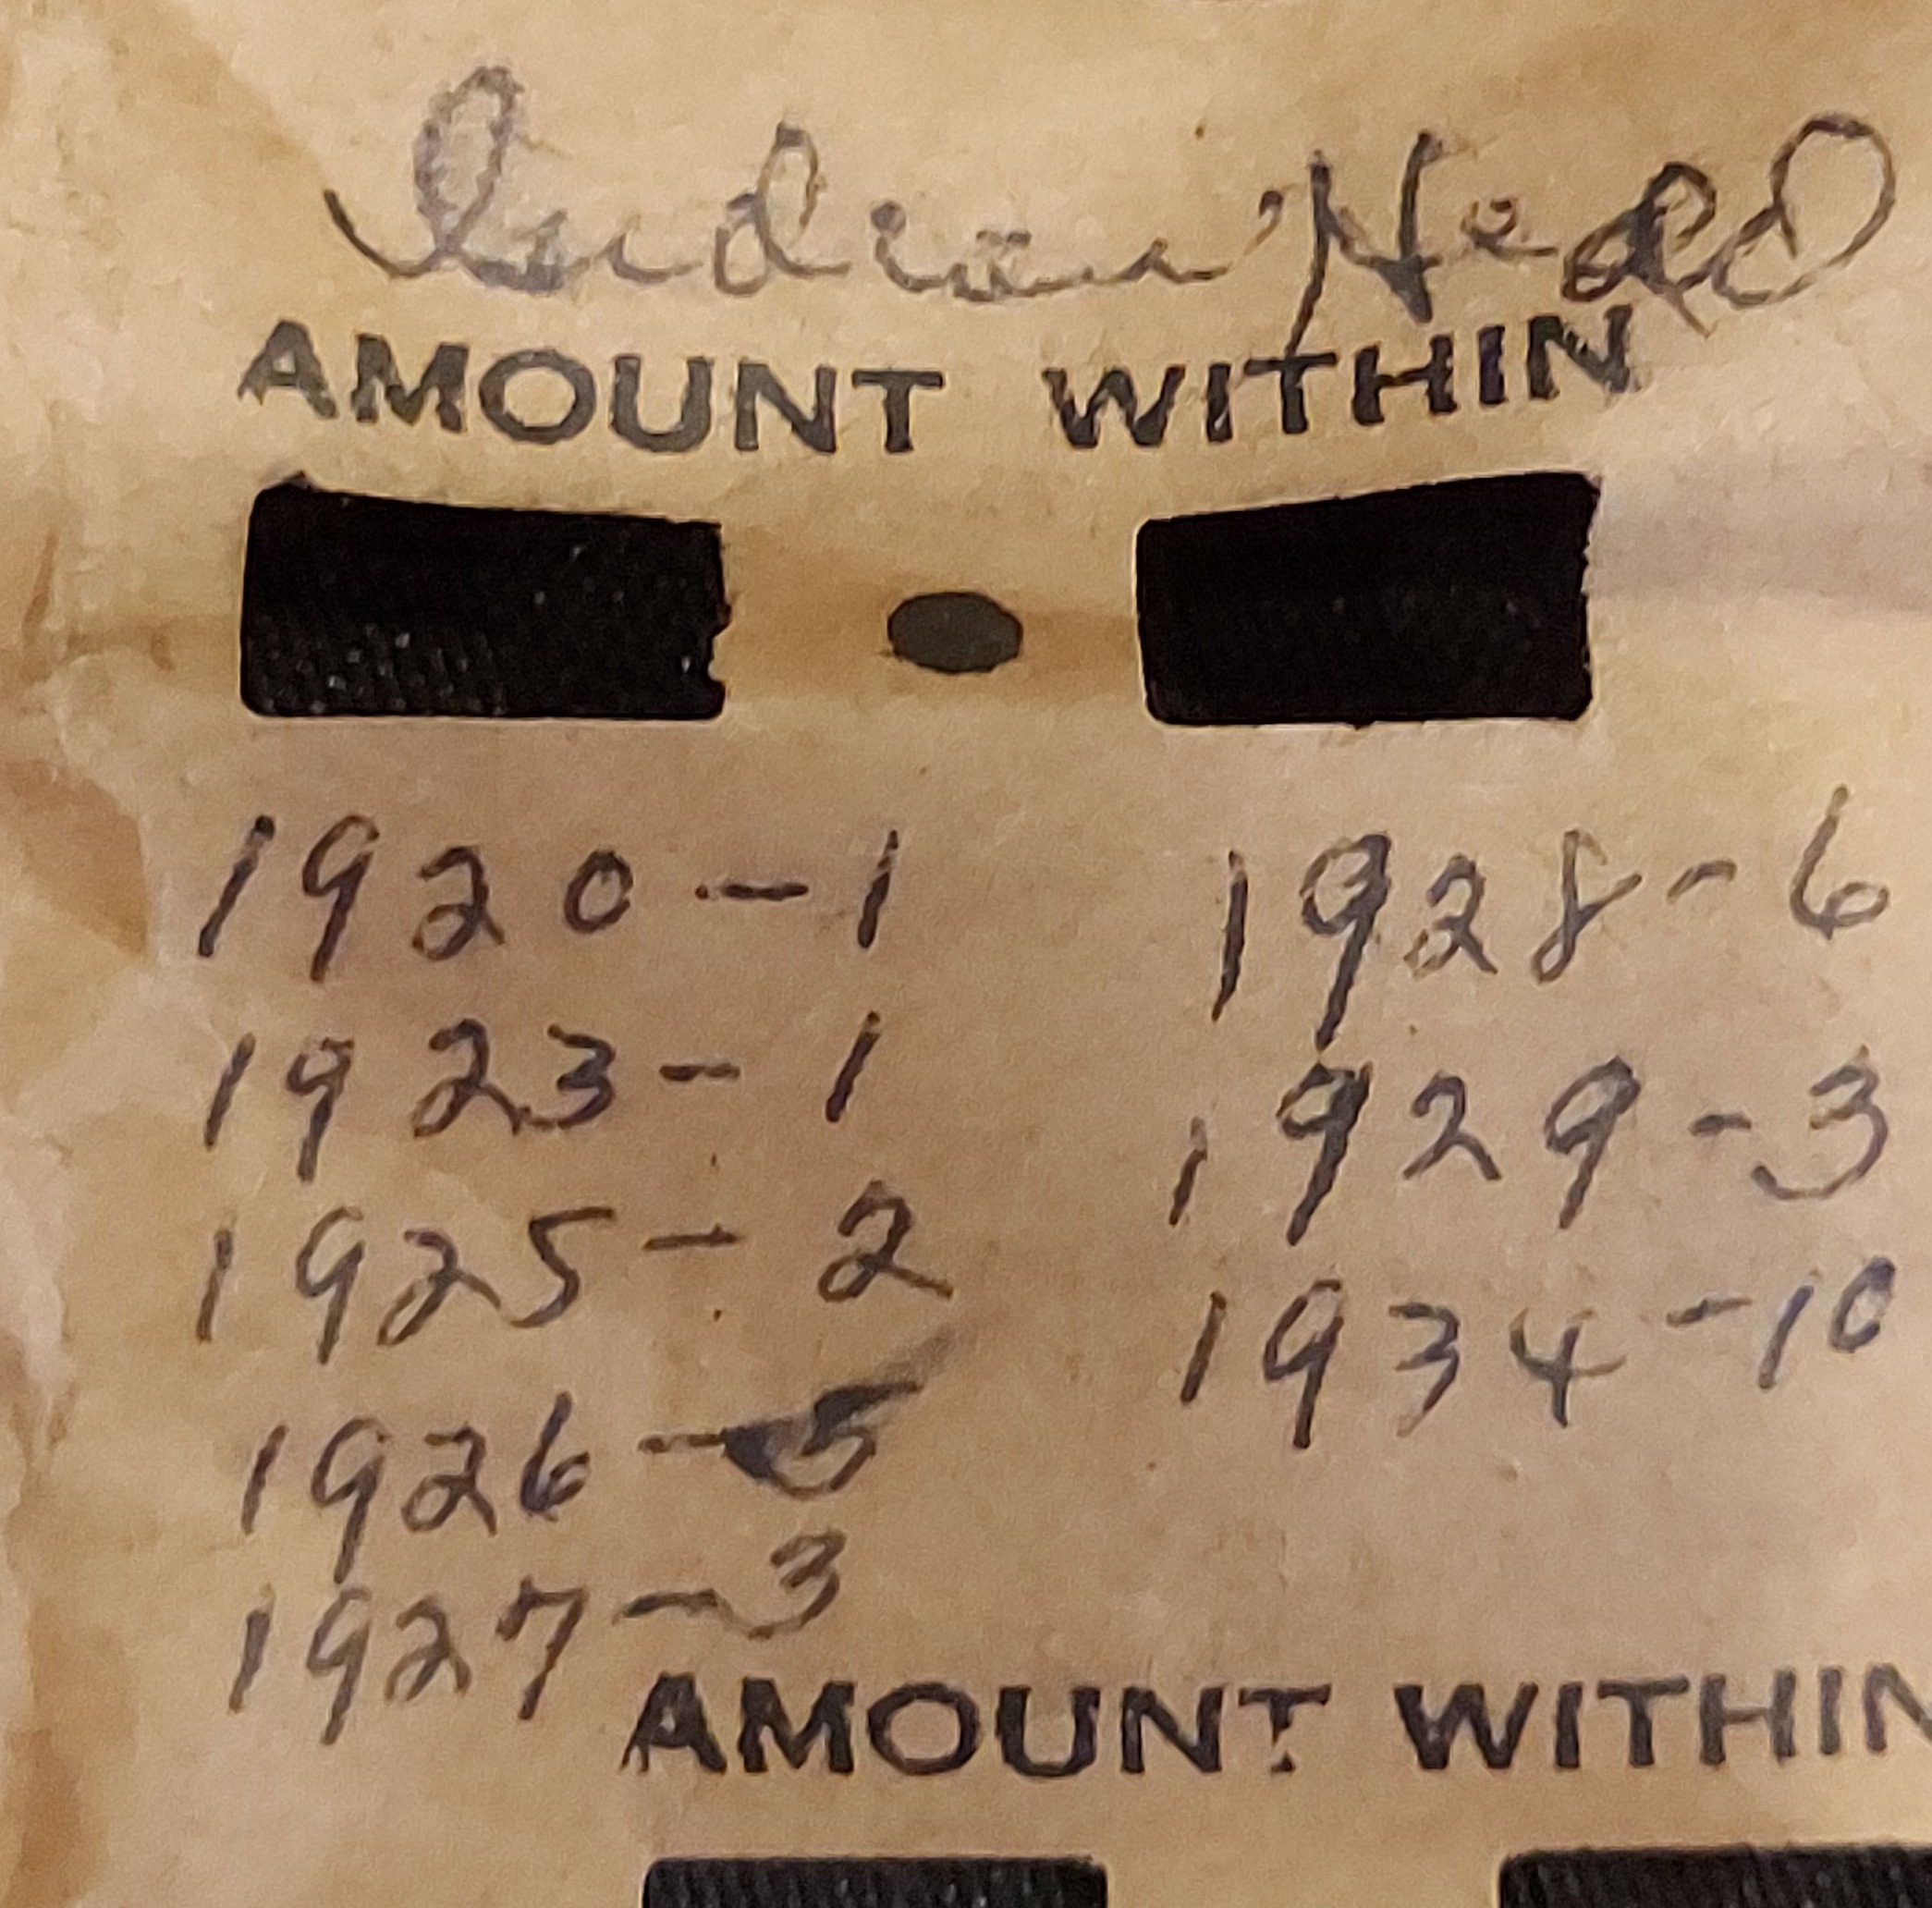 Indian Head
AMOUNT WITHIN
1920-1
1923-1
1925-2
1926-5
1927-3
1928-6
1929-3
1934-10
AMOUNT WITHIN